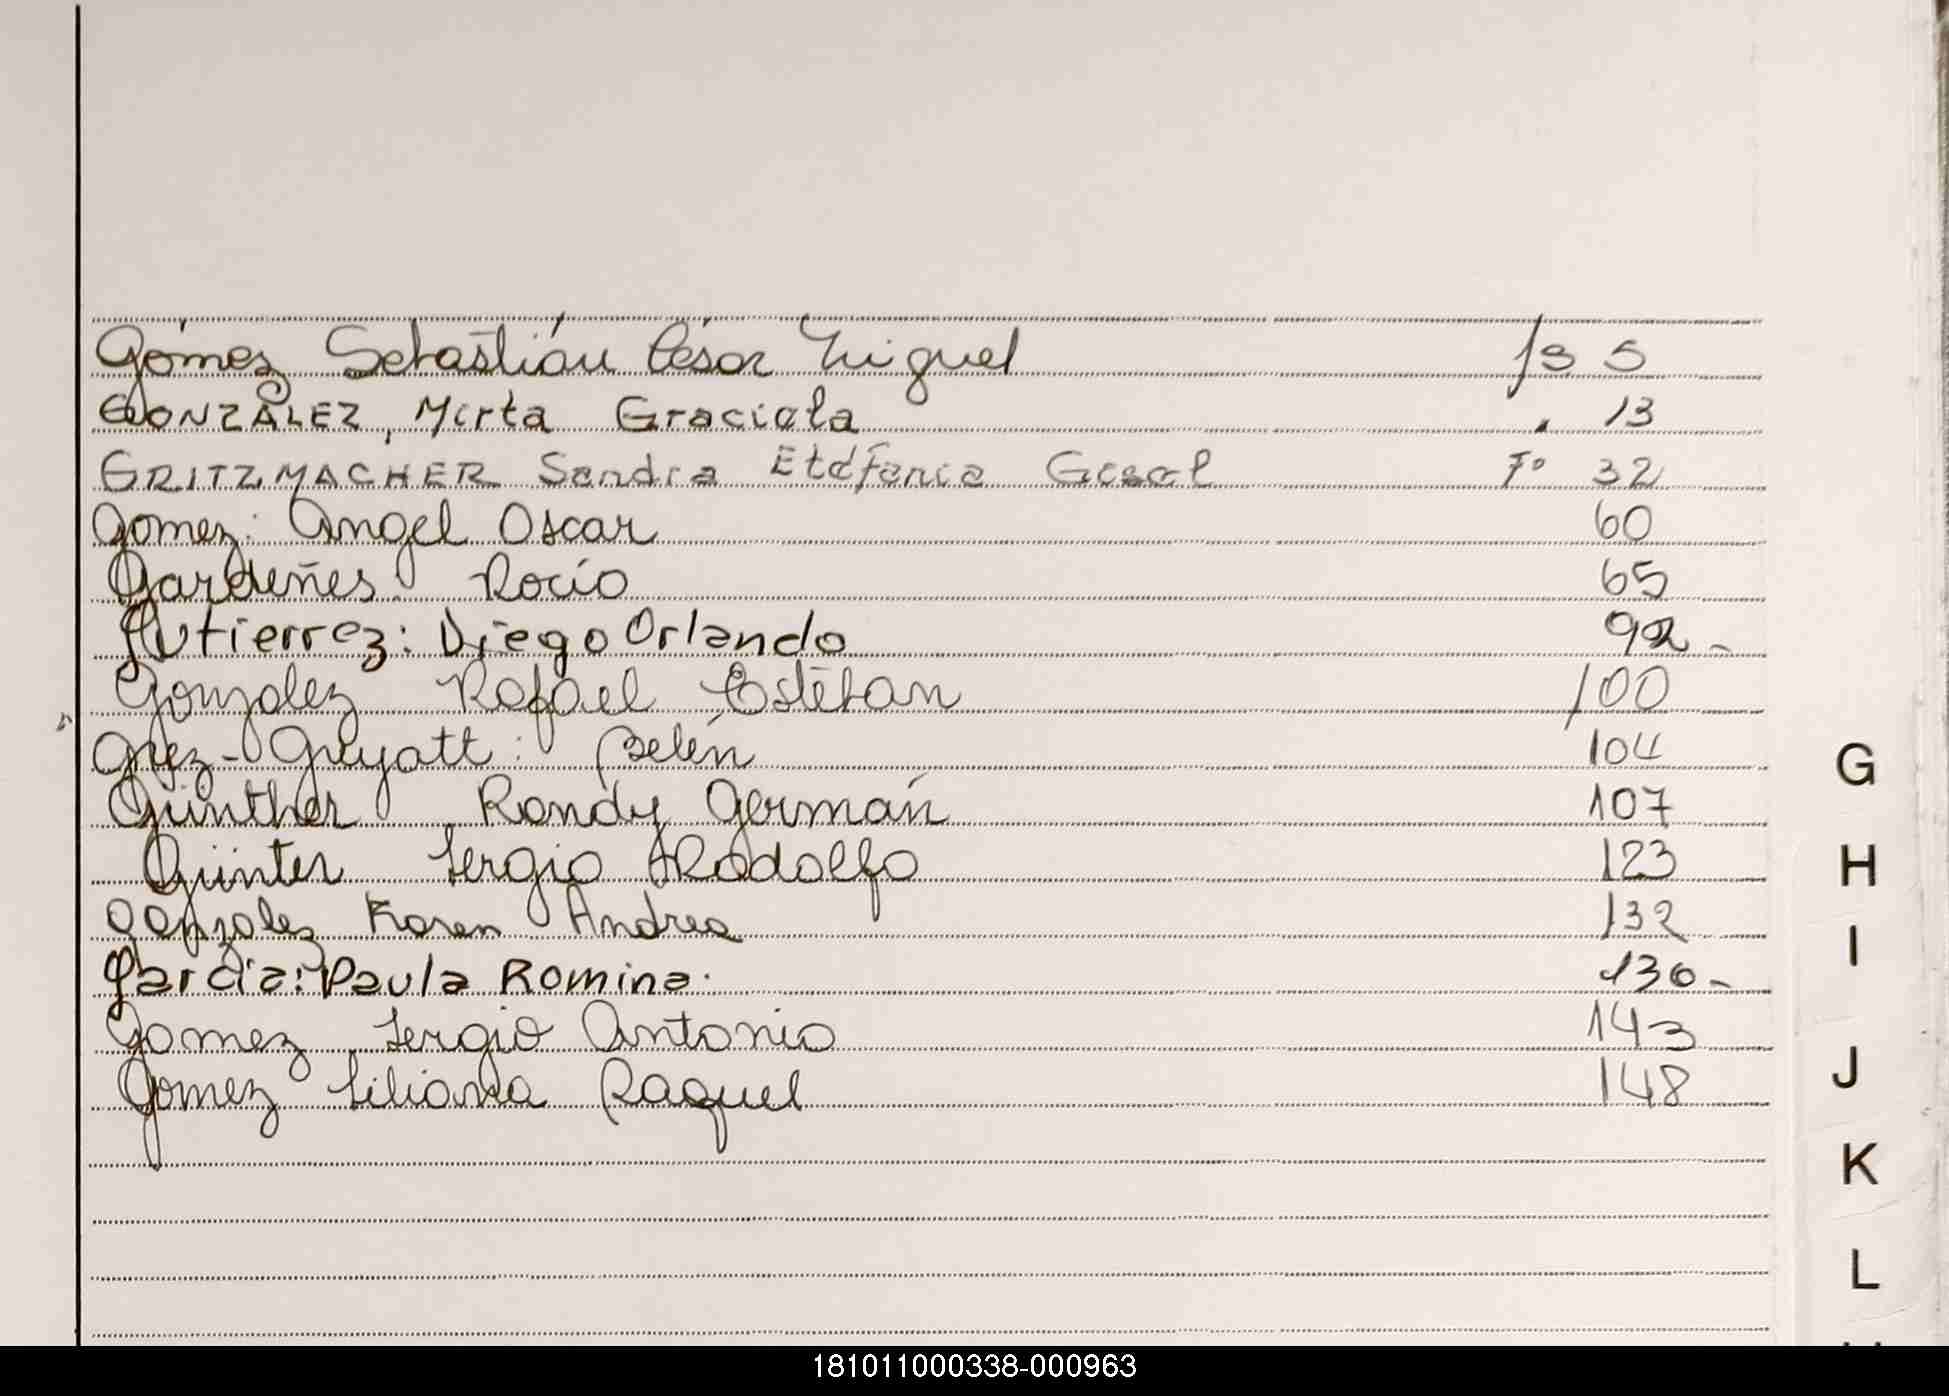 Gómez Sebastián César Miguel fs 5
GONZÁLEZ, Mirta Graciela " 13
GRITZMACHER Sandra Estefania Gesel Fº 32
Gomez: Angel Oscar 60
Gardeñes Rocío 65
Gutierrez: Diego Orlando 92-
Gonzalez Rafael Esteban 100
Grez-Guyatt: Belén 104
Günther Randy Germán 107
Günter Sergio Rodolfo 123
Gonzalez Karen Andrea 132
Garcia: Paula Romina. 136-
Gomez Sergio Antonio 143
Gomez Liliana Raquel 148
G
H
I
J
K
L
181011000338-000963